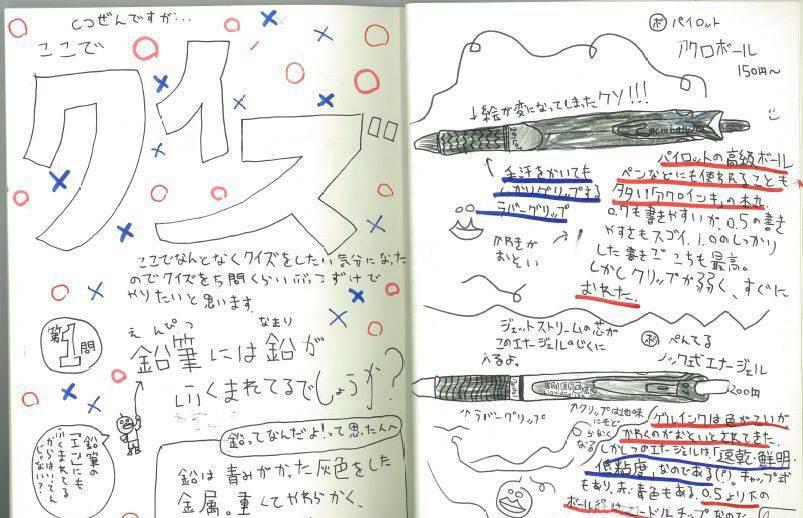 とつぜんですが…
ここで
クイズ
ここでなんとなくクイズをしたい気分になった
のでクイズを5問くらいぶっつずけで
やりたいと思います。
第1問
えんぴつ なまり
鉛筆には鉛が
ふくまれてるでしょうか?
鉛筆の
「エン」にも
ふくまれてる
からはいてん
じゃない?
鉛ってなんだよ!って思った人へ
鉛は青みがかった灰色をした
金属。重くてやわらかく、
ボ パイロット
アクロボール
150円〜
↓絵が変になってしまったクソ!!!
手汗をかいても
しっかりグリップする
ラバーグリップ
かわきが
おそい
パイロットの高級ボール
ペンなどにも使われることも
多い「アクロインキ」の本丸
0.7も書きやすいが、0.5の書き
やすさもスゴイ、1.0のしっかり
した書きごこちも最高。
しかしクリップが弱く、すぐに
おれた。
ジェットストリームの芯が
このエナージェルのじくに
入るよ。
ボ ぺんてる
ノック式エナージェル
200円
↑ラバーグリップ
クリップは地味に
ゲルインクは色がこいが
かわくのがおそいとされてきた。
しかしこのエナージェルは「速乾・鮮明・
低粘度」なのである(?)。キャップ式
もあり、赤、青色もある。0.5より下の